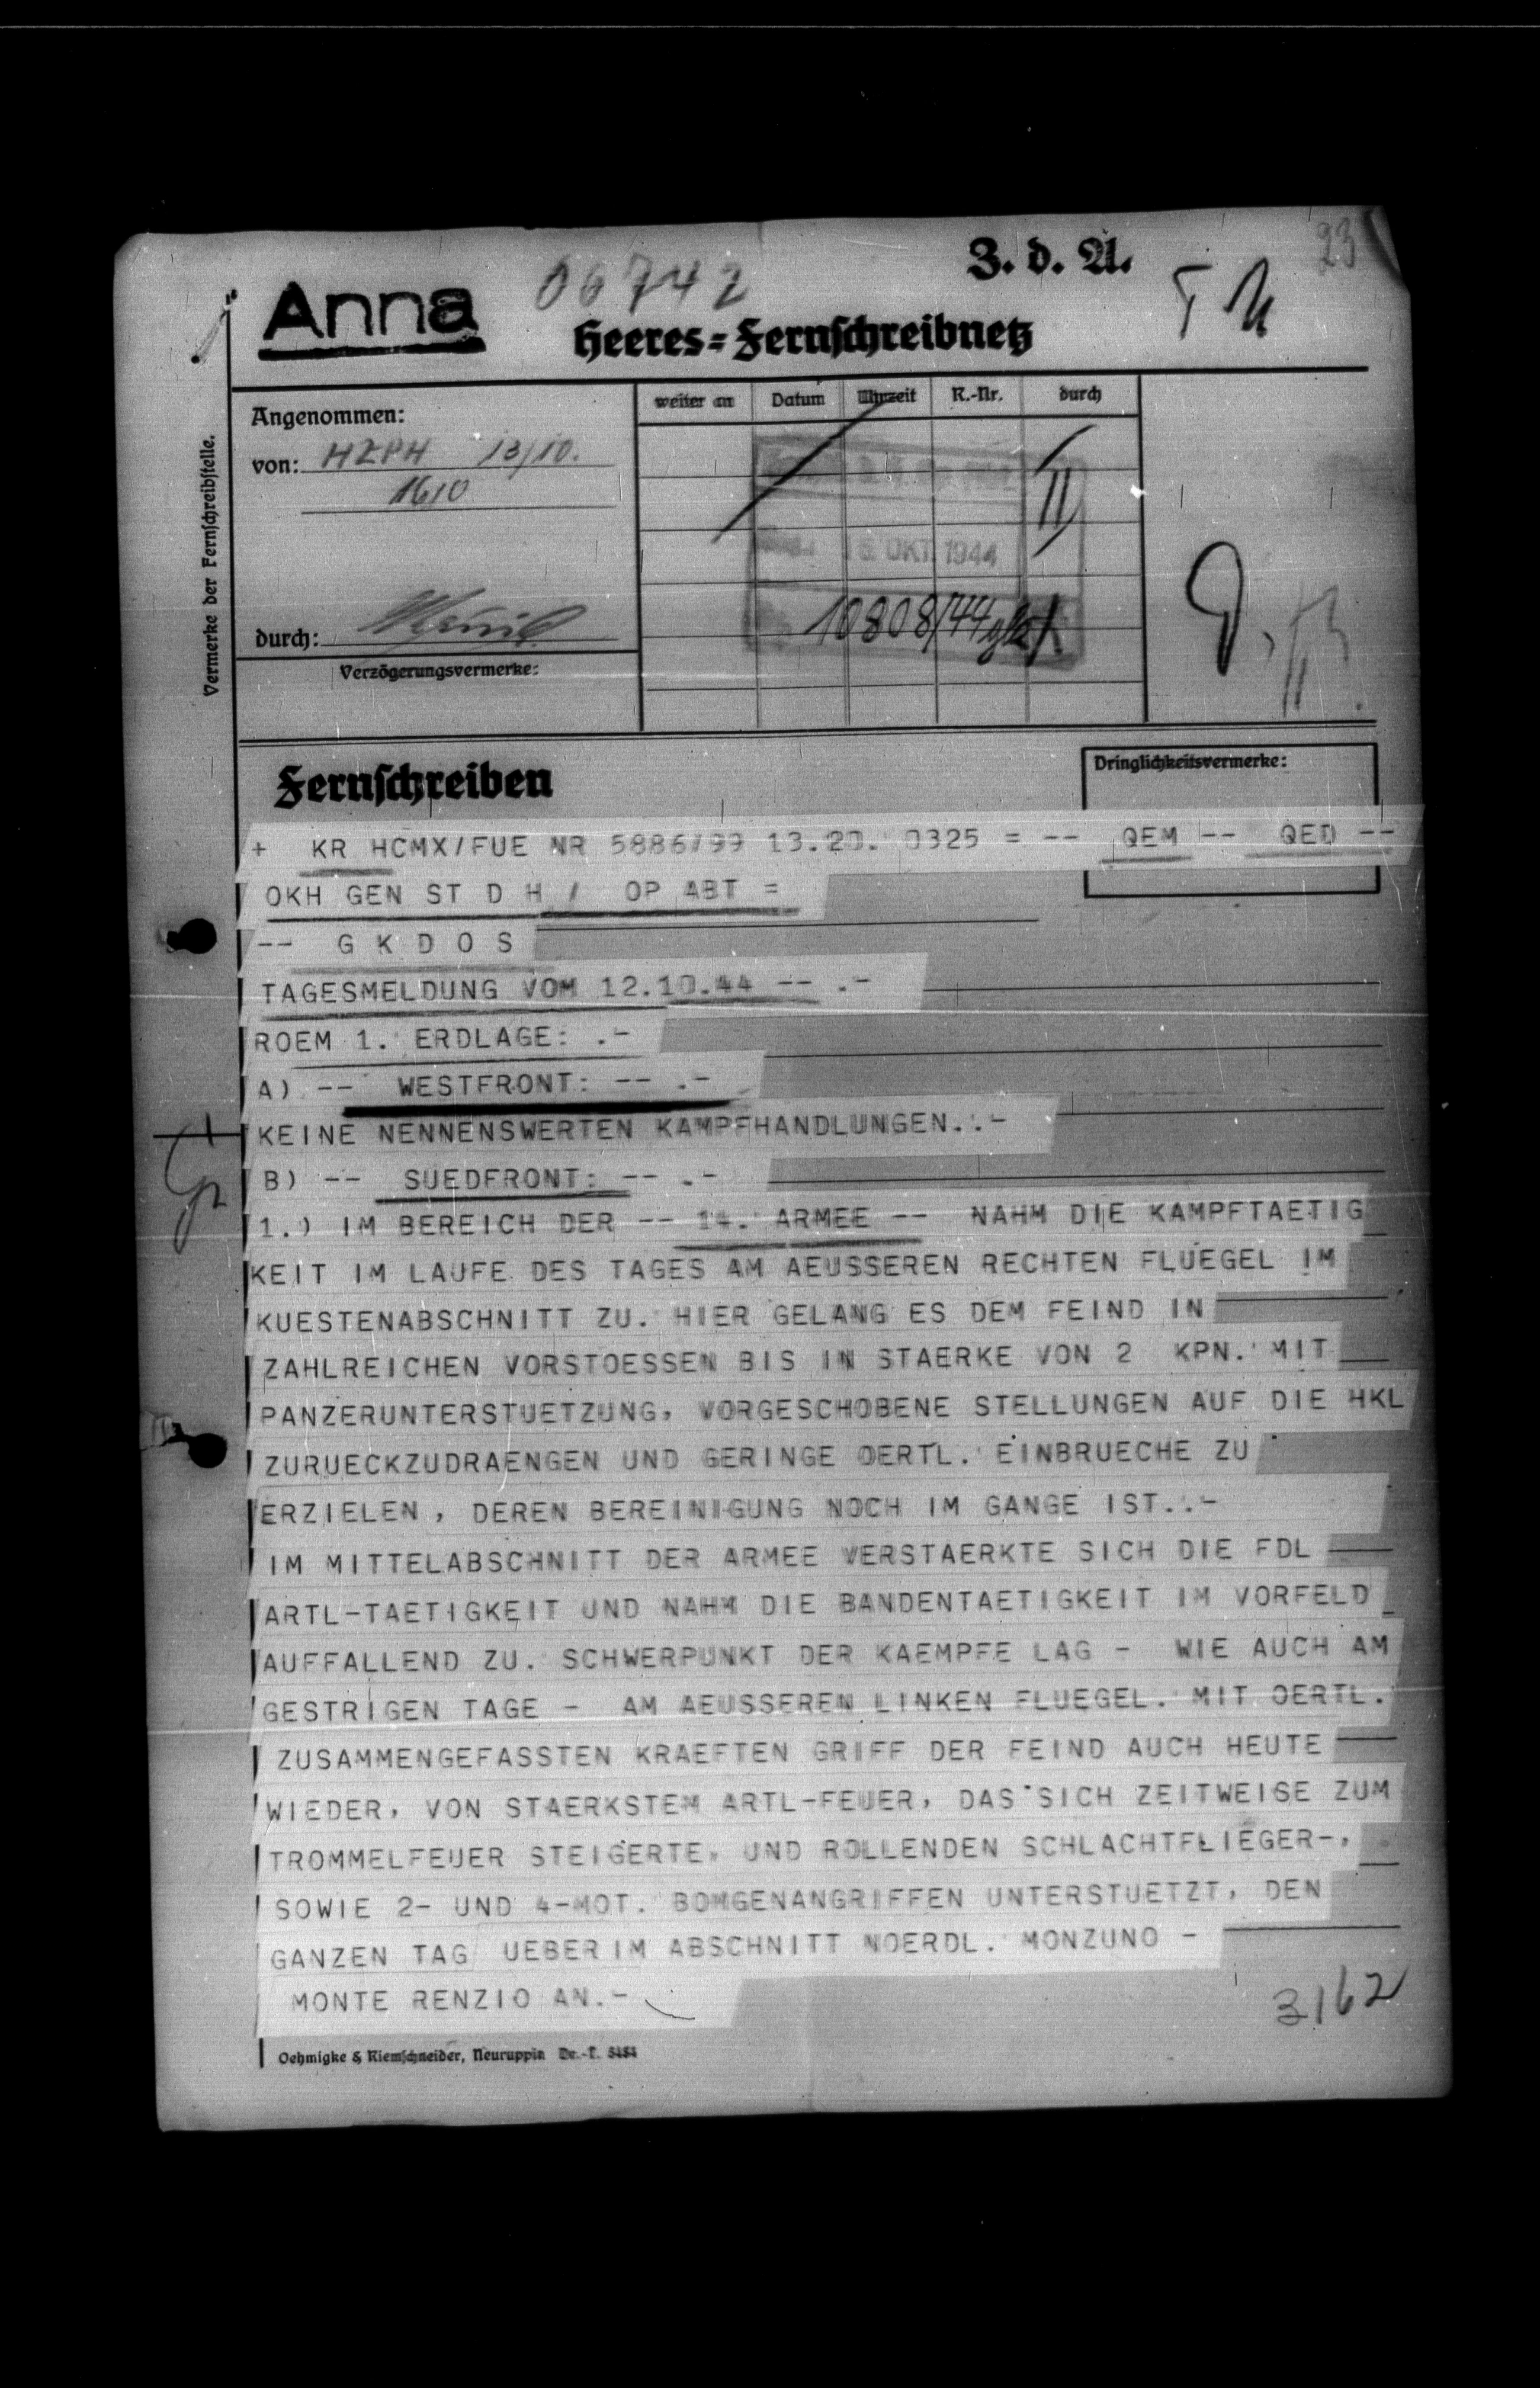 23
Z. d. A.
Anna
06742
Heeres=Fernschreibnetz
Vermerke der Fernschreibstelle.
Angenommen:
von: HZPH 13/10.
1610
durch:
Verzögerungsvermerke:
weiter an Datum Uhrzeit R.-Nr. durch
OKT. 1944
10808/44
Fernschreiben
Dringlichkeitsvermerke:
+ KR HCMX/FUE NR 5886/99 13.20. 0325 = -- QEM -- QED --
OKH GEN ST D H / OP ABT =
-- G K D O S
TAGESMELDUNG VOM 12.10.44 -- .-
ROEM 1. ERDLAGE: .-
A) -- WESTFRONT: -- .-
KEINE NENNENSWERTEN KAMPFHANDLUNGEN..-
B) -- SUEDFRONT: -- .-
1.) IM BEREICH DER -- 14. ARMEE -- NAHM DIE KAMPFTAETIG
KEIT IM LAUFE DES TAGES AM AEUSSEREN RECHTEN FLUEGEL IM
KUESTENABSCHNITT ZU. HIER GELANG ES DEM FEIND IN
ZAHLREICHEN VORSTOESSEN BIS IN STAERKE VON 2 KPN. MIT
PANZERUNTERSTUETZUNG, VORGESCHOBENE STELLUNGEN AUF DIE HKL
ZURUECKZUDRAENGEN UND GERINGE OERTL. EINBRUECHE ZU
ERZIELEN, DEREN BEREINIGUNG NOCH IM GANGE IST..-
IM MITTELABSCHNITT DER ARMEE VERSTAERKTE SICH DIE FDL
ARTL-TAETIGKEIT UND NAHM DIE BANDENTAETIGKEIT IM VORFELD
AUFFALLEND ZU. SCHWERPUNKT DER KAEMPFE LAG - WIE AUCH AM
GESTRIGEN TAGE - AM AEUSSEREN LINKEN FLUEGEL. MIT OERTL.
ZUSAMMENGEFASSTEN KRAEFTEN GRIFF DER FEIND AUCH HEUTE
WIEDER, VON STAERKSTEM ARTL-FEUER, DAS SICH ZEITWEISE ZUM
TROMMELFEUER STEIGERTE, UND ROLLENDEN SCHLACHTFLIEGER-,
SOWIE 2- UND 4-MOT. BOMGENANGRIFFEN UNTERSTUETZT, DEN
GANZEN TAG UEBER IM ABSCHNITT NOERDL. MONZUNO -
MONTE RENZIO AN.-
3162
Oehmigke & Riemschneider, Neuruppin